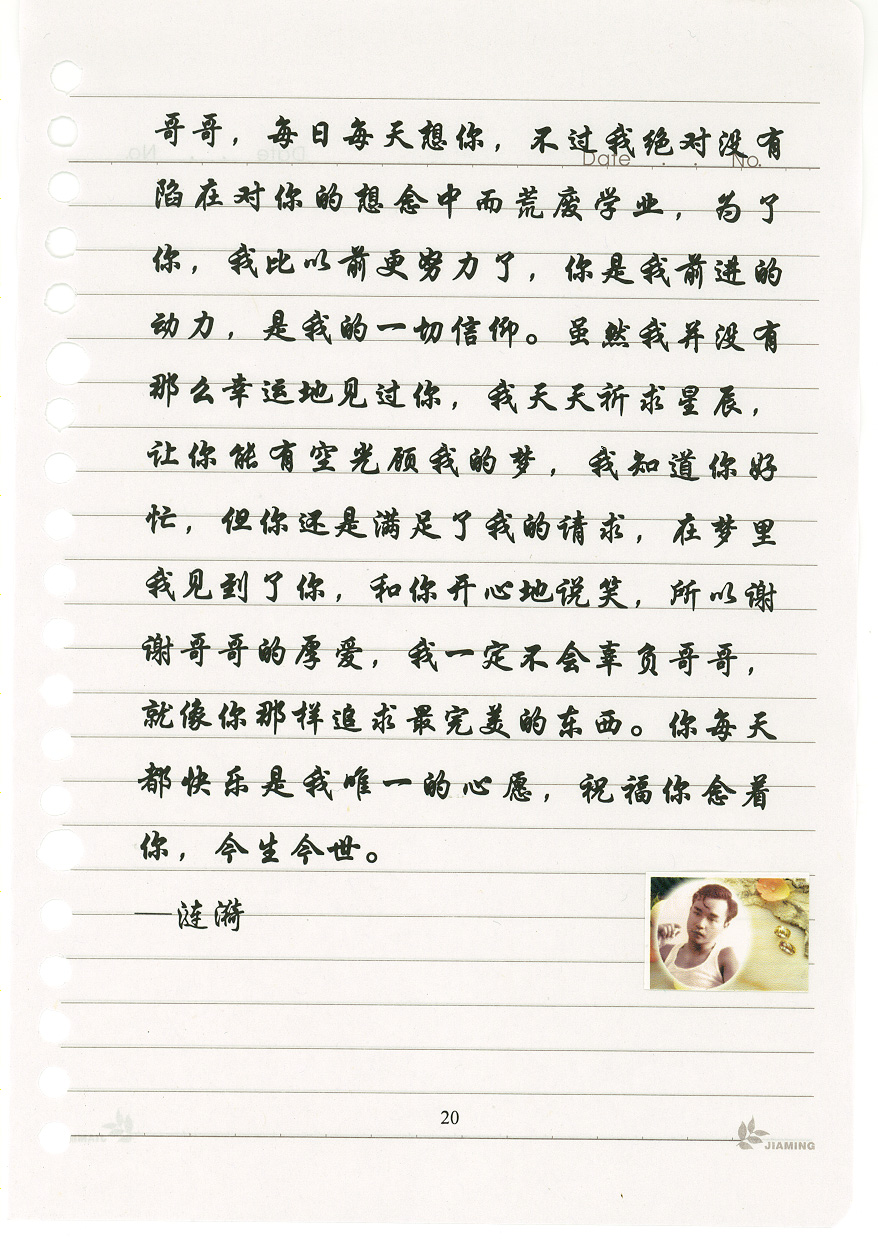 哥哥，每日每天想你，不过我绝对没有
Date . . No.
陷在对你的想念中而荒废学业，为了
你，我比以前更努力了，你是我前进的
动力，是我的一切信仰。虽然我并没有
那么幸运地见过你，我天天祈求星辰，
让你能有空光顾我的梦，我知道你好
忙，但你还是满足了我的请求，在梦里
我见到了你，和你开心地说笑，所以谢
谢哥哥的厚爱，我一定不会辜负哥哥，
就像你那样追求最完美的东西。你每天
都快乐是我唯一的心愿，祝福你念着
你，今生今世。
—涟漪
20
JIAMING